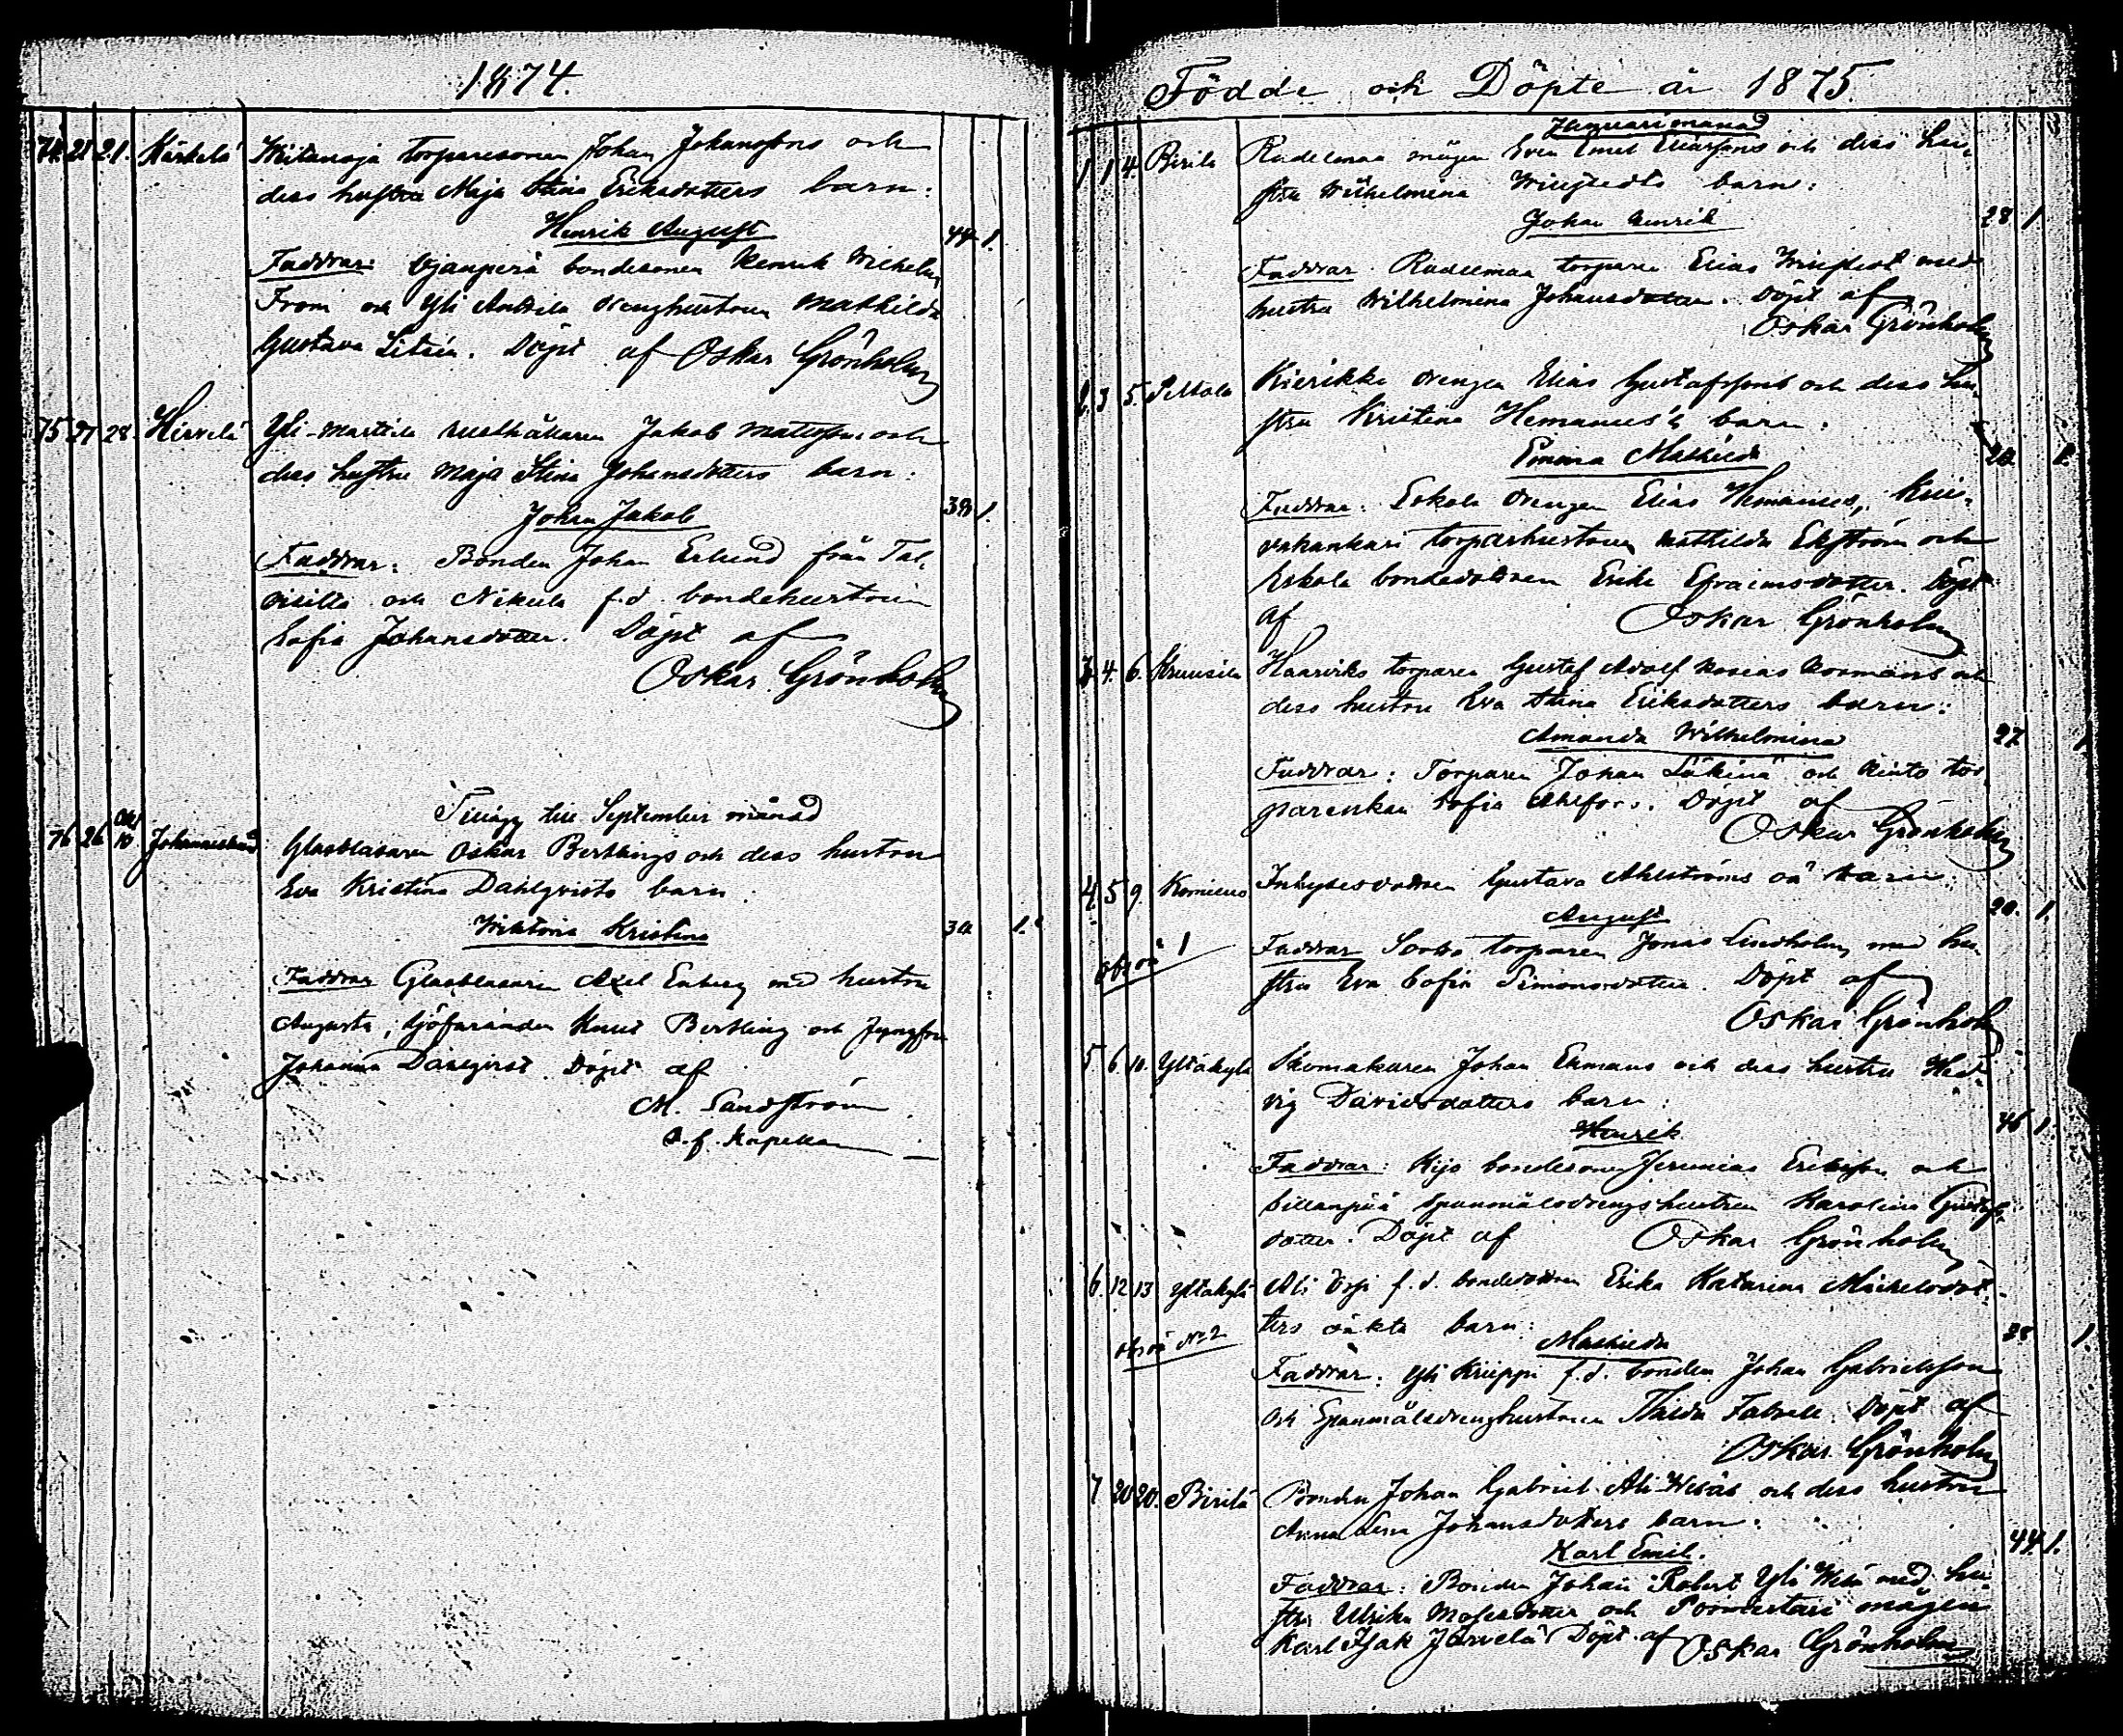 1874.
74. 21 21. Kärkelä torparesonen Johan Johanssons och
dess hustru Maja Stina Eriksdotters barn:
Henrik August
44 1.
Faddrar: Ojanperä bondesonen Henrik Wilhelm
From och Yli Anttila drenghustrun Mathilda
Gustava Litrén. Döpt af Oskar Grönholm
75 27 28. Hirvelä Yli-Martila rusthållaren Jakob Mattssons och
dess hustru Maja Stina Johansdotters barn.
Johan Jakob
39 1.
Faddrar: Bonden Johan Erlund från Tal-
visilta och Nikula f.d. bondehustrun
Sofia Johansdotter. Döpt af
Oskar Grönholm
Tillägg till September månad
76 26 Okt 10 Johanneslund Glasblåsaren Oskar Bertlings och dess hustru
Eva Kristina Dahlqvists barn:
Wiktoria Kristina
30 1.
Faddrar Glasblåsaren Axel Enberg med hustru
Augusta, Sjöfaranden Knut Bertling och Jungfru
Johanna Dahlqvist. Döpt af
M. Sandström
v.f. Kapellan
Födde och Döpte år 1875
Januari månad
1 1 4. Pirilä mågen Sven Emil Eliassons och dess hu-
stru Wilhelmina Wingstedts barn:
Johan Henrik
28 1.
Faddrar torparen Elias Wingstedt med
hustru Wilhelmina Johansdotter. Döpt af
Oskar Grönholm
2. 3 5. Peltola Kierikka drengen Elias Gustafssons och dess hu-
stru Kristina Hemanus's barn.
Emma Mathilda
1.
Faddrar: Eskola drengen Elias Hemanus,
torparhustrun Mathilda Ekström och
Eskola bondedottren Erika Efraimsdotter. Döpt
af Oskar Grönholm
3. 4. 6. Kruusila torparen Gustaf Adolf och
dess hustru Eva Stina Eriksdotters barn:
Amanda Wilhelmina
27 1
Faddrar: Torparen Johan och tor-
parenkan Sofia Ahlfors. Döpt af
Oskar Grönholm
4. 5 9. Inhysesdottren Gustava Ahlströms oä barn:
August
20. 1.
of oä 1
Faddrar torparen Jonas Lindholm med hu-
stru Eva Sofia Simonsdotter. Döpt af
Oskar Grönholm
5. 6 10. Yltäkylä Skomakaren Johan Ekmans och dess hustru Hed-
vig Davidsdotters barn:
Henrik
46 1.
Faddrar: bondesonen Jeremias Eriksson och
Sillanpää spanmålsdrengshustrun Karolina Gustafs-
dotter. Döpt af Oskar Grönholm
6. 12 13 Yltäkylä Ali f.d. bondedottren Erika Katarina Mickelsdot-
ters oäkta barn:
Mathilda
28 1.
of oä No 2
Faddrar: Yli f.d. bonden Johan Gabrielsson
och Spanmålsdrenghustrun Döpt af
Oskar Grönholm
7 20 20. Pirilä Bonden Johan Gabriel Ali-Wesäs och dess hustru
Anna Lena Johansdotters barn:
Karl Emil.
44. 1.
Faddrar: Bonden Johan Robert Yli Wesä med hu-
stru Ulrika Mosesdotter och mågen
Karl Isak Järvelä Döpt af Oskar Grönholm